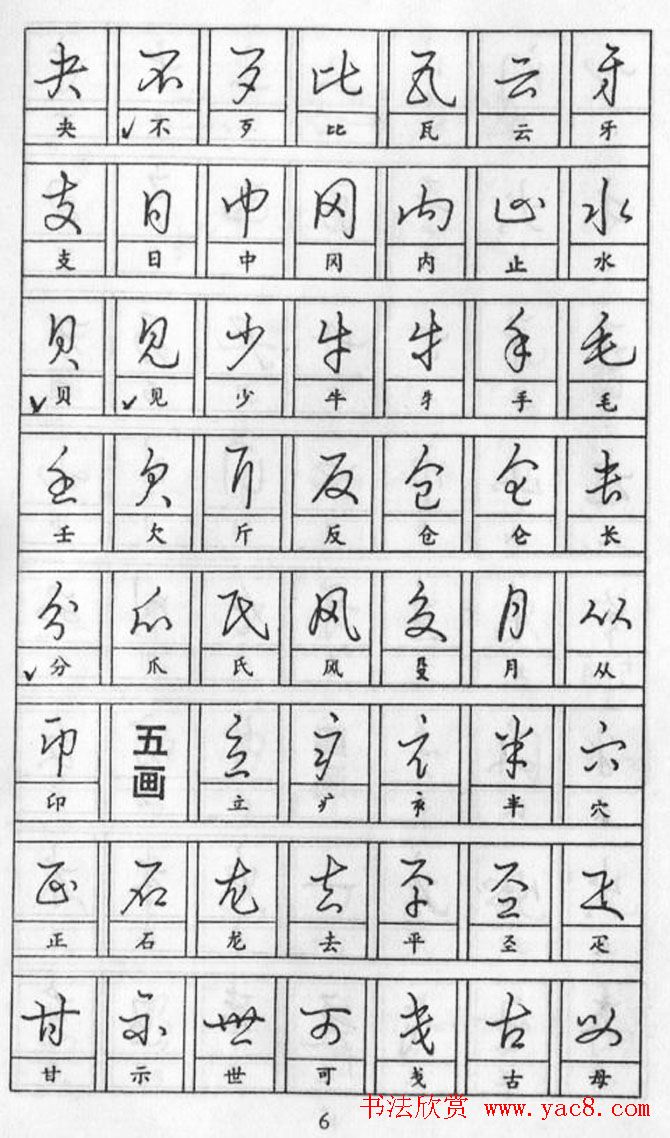 夬 不 歹 比 瓦 云 牙
夬 不 歹 比 瓦 云 牙
支 日 中 冈 内 止 水
支 日 中 冈 内 止 水
贝 见 少 牛 牜 手 毛
贝 见 少 牛 牜 手 毛
壬 欠 斤 反 仓 仑 长
壬 欠 斤 反 仓 仑 长
分 爪 氏 风 殳 月 从
分 爪 氏 风 殳 月 从
印 五画 立 疒 半 穴
印 立 疒 半 穴
正 石 龙 去 平 圣 疋
正 石 龙 去 平 圣 疋
甘 示 世 可 戋 古 母
甘 示 世 可 戋 古 母
6
书法欣赏 www.yac8.com